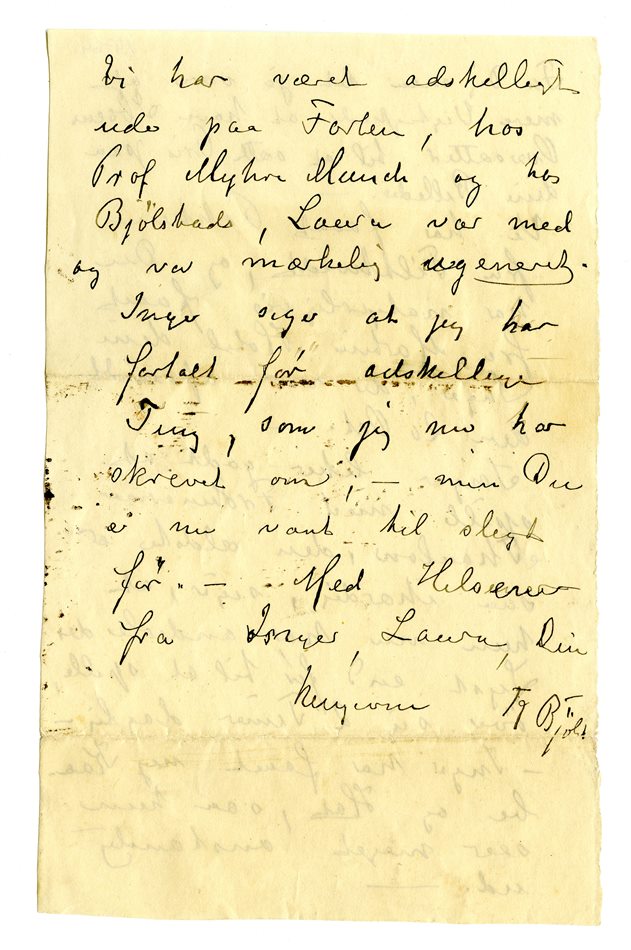 Vi har været adskelligt
ude paa Forten, hos
Prof Myhre Munch og hos
Bjölstads, Laura var med
og var mærkelig ugeneret.
Inger siger at jeg har
fortalt før adskellige
Ting, som jeg nu har
skrevet om, – men Du
er nu vant til sligt
før. – Med Hilsener
fra Inger, Laura, Din
hengivne